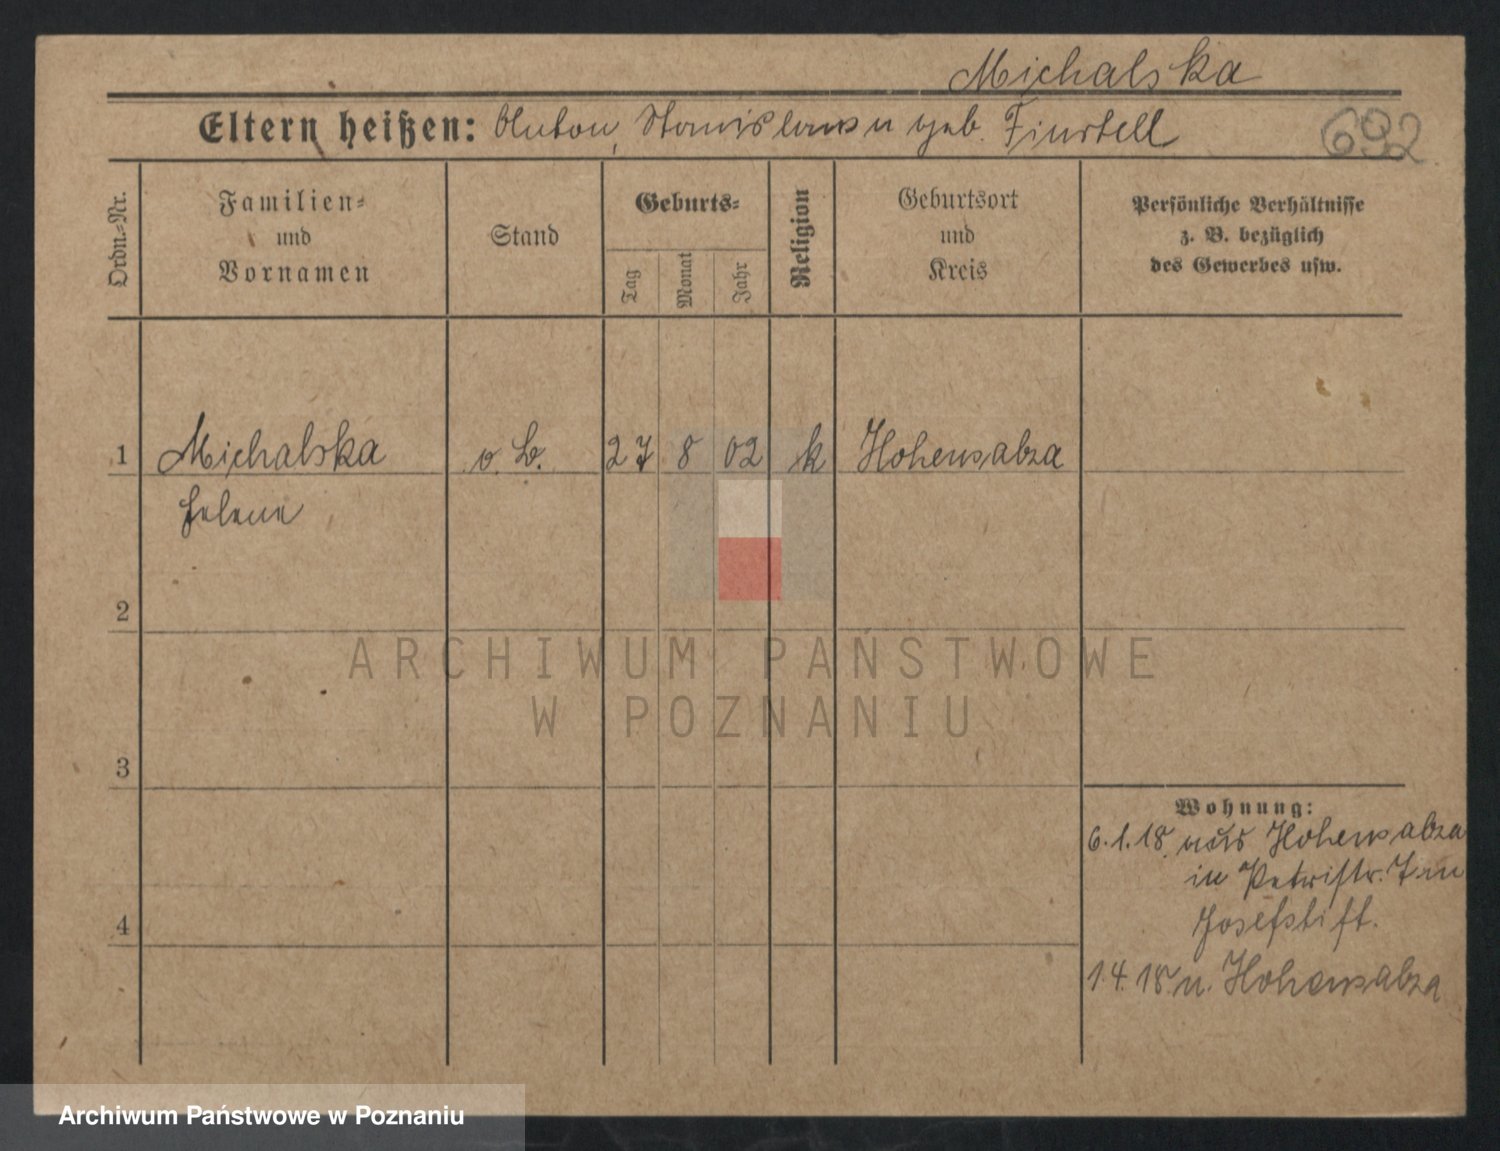 Michalska
Eltern heißen: Anton, Stanislawa geb.
692
Ordn.-Nr.
Familien-
und
Vornamen
Stand
Geburts-
Tag
Monat
Jahr
Religion
Geburtsort
und
Kreis
Persönliche Verhältnisse
z. B. bezüglich
des Gewerbes usw.
1 Michalska o. B. 27 8 02 k Hohensalza
Helene
2
3
4
Wohnung:
6.1.18 aus Hohensalza
in Petristr. 7 im
Josefstift.
1.4.18. n. Hohensalza
ARCHIWUM PAŃSTWOWE
W POZNANIU
Archiwum Państwowe w Poznaniu